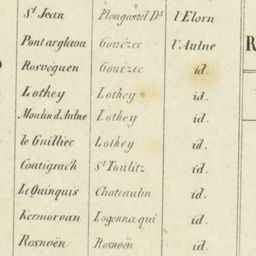 St. Jean Plougastel Ds. l'Elorn
Pontarglvan Gouézec l'Aulne
Rosveguen Gouezec id.
Lothey Lothey id.
Moulin d'Aulne Lothey id.
le Guillec Lothey id.
Coatigrach St. Toulitz id.
Le Quinquis Chateaulin id.
Kermorvan Logonna qui id.
Rosnoën Rosnoën id.
R